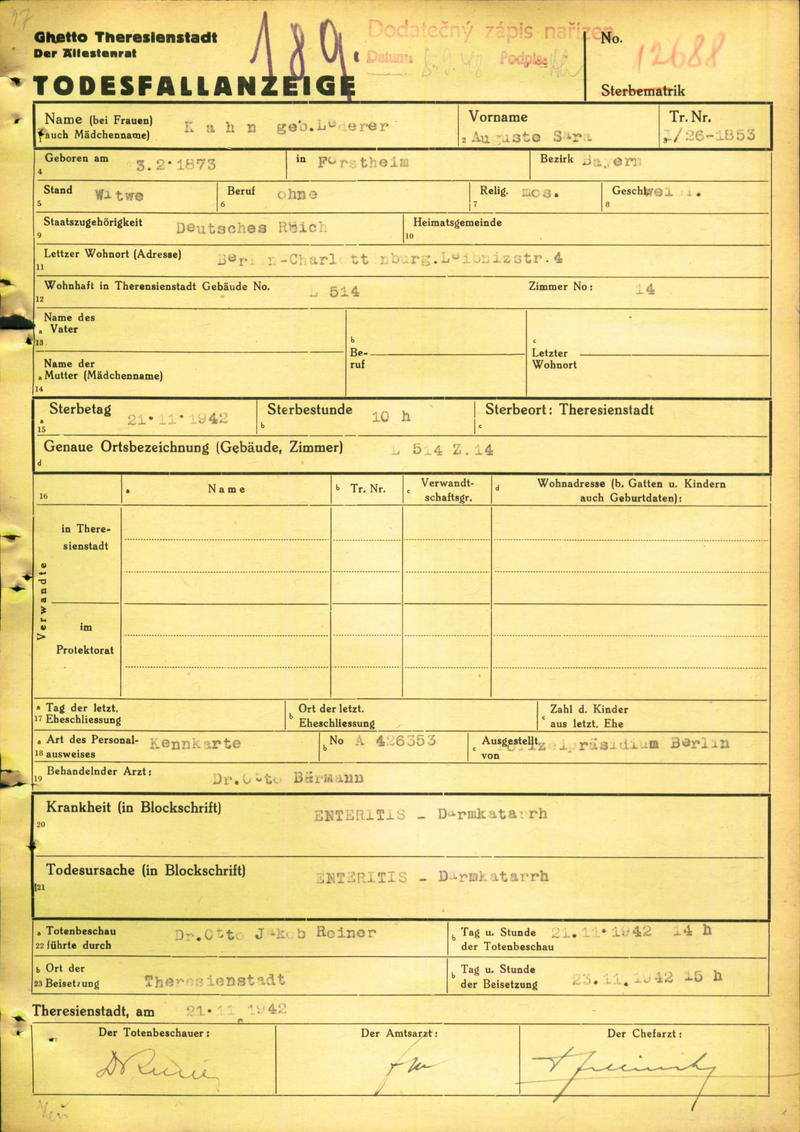 Ghetto Theresienstadt
Der Ältestenrat
TODESFALLANZEIGE
189.
Dodatečný zápis nařízen
Datum: Podpis:
No. 12688
Sterbematrik
Name (bei Frauen) auch Mädchenname) Kahn geb.Lederer
Vorname 2 Auguste Sara
Tr. Nr. I/26-1853
4 Geboren am 3.2.1873 in Forstheim Bezirk Bayern
5 Stand Witwe 6 Beruf ohne 7 Relig. mos. 8 Geschl.
9 Staatszugehörigkeit Deutsches Reich 10 Heimatsgemeinde
11 Lettzer Wohnort (Adresse) Berlin-Charlottenburg.Leibnizstr.4
12 Wohnhaft in Therensienstadt Gebäude No. L 514 Zimmer No: 14
13 a Name des Vater
14 a Name der Mutter (Mädchenname)
b Beruf
c Letzter Wohnort
15 a Sterbetag 21.11.1942 b Sterbestunde 10 h c Sterbeort: Theresienstadt
d Genaue Ortsbezeichnung (Gebäude, Zimmer) L 514 Z.14
16 a Name b Tr. Nr. c Verwandtschaftsgr. d Wohnadresse (b. Gatten u. Kindern auch Geburtdaten):
Verwandte
in Theresienstadt
im Protektorat
17 a Tag der letzt. Eheschliessung b Ort der letzt. Eheschliessung c Zahl d. Kinder aus letzt. Ehe
18 a Art des Personalausweises Kennkarte b No A 426353 c Ausgestellt von Polizeipräsidium Berlin
19 Behandelnder Arzt: Dr.Otto Bärmann
20 Krankheit (in Blockschrift) ENTERITIS - Darmkatarrh
21 Todesursache (in Blockschrift) ENTERITIS - Darmkatarrh
22 a Totenbeschau führte durch Dr.Otto Jakob Reiner b Tag u. Stunde der Totenbeschau 21.11.1942 14 h
23 b Ort der Beisetzung Theresienstadt b Tag u. Stunde der Beisetzung 23.11.1942 15 h
Theresienstadt, am 21.11.1942
Der Totenbeschauer: Der Amtsarzt: Der Chefarzt: